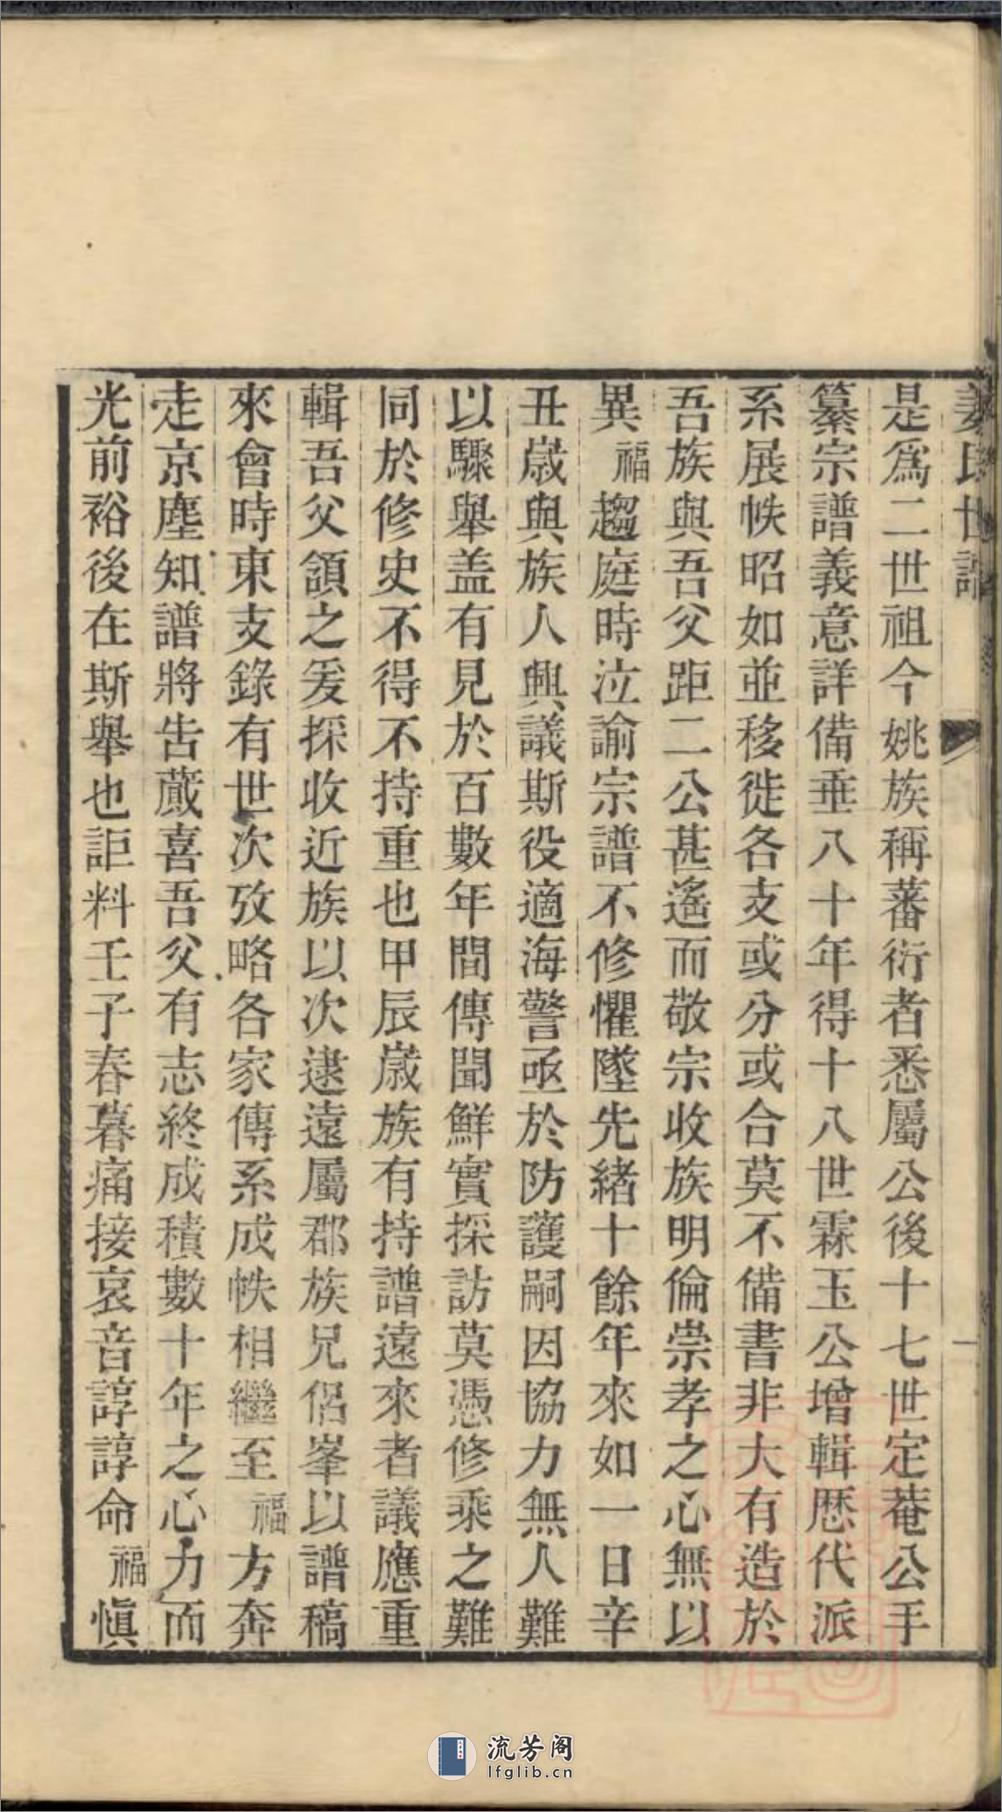 姜氏世譜
一
是爲二世祖今姚族稱蕃衍者悉屬公後十七世定菴公手
纂宗譜義意詳備垂八十年得十八世霖玉公增輯歴代派
系展帙昭如並移徙各支或分或合莫不備書非大有造於
吾族與吾父距二公甚遙而敬宗收族明倫崇孝之心無以
異福趨庭時泣諭宗譜不修懼墜先緒十餘年來如一日辛
丑嵗與族人興議斯役適海警亟於防護嗣因協力無人難
以驟舉盖有見於百數年間傳聞鮮實採訪莫憑修乘之難
同於修史不得不持重也甲辰嵗族有持譜遠來者議應重
輯吾父頷之爰採收近族以次逮遠屬郡族兄侶峯以譜稿
來會時東支錄有世次攷略各家傳系成帙相繼至福方奔
走京塵知譜將告蕆喜吾父有志終成積數十年之心力而
光前裕後在斯舉也詎料壬子春暮痛接哀音諄諄命福愼
流芳阁
lfglib.cn